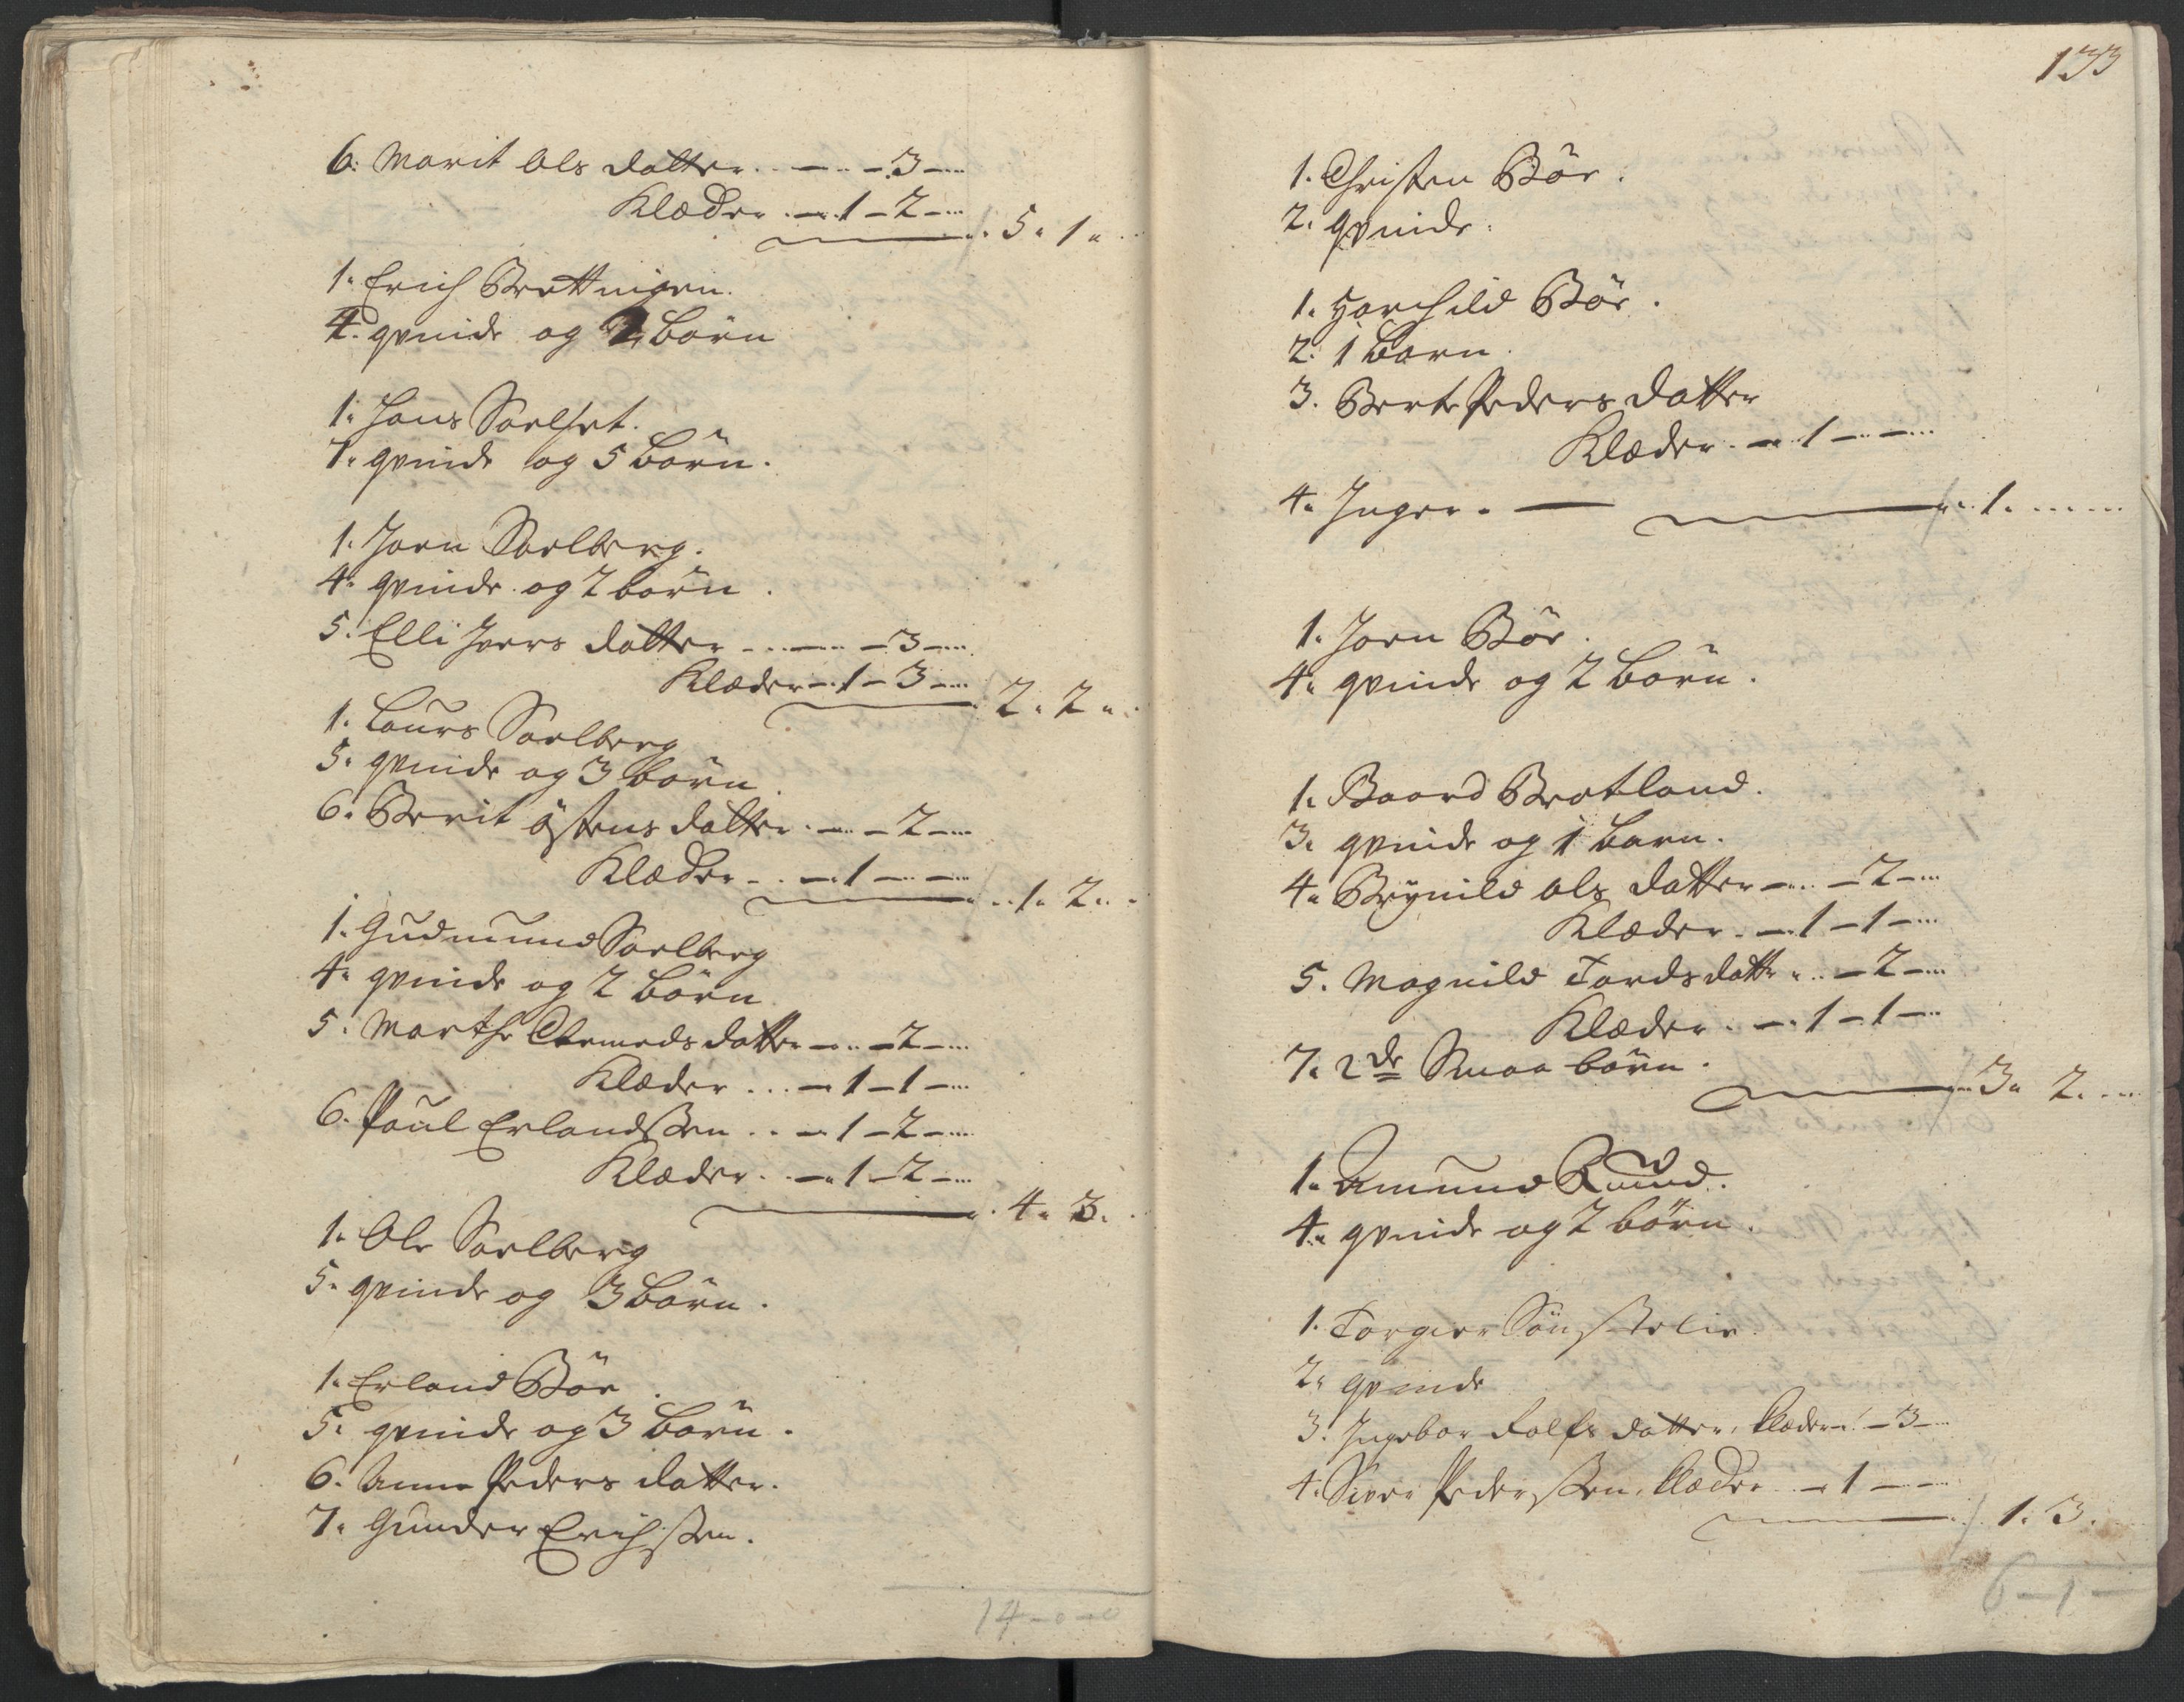 6. Marit Ols datter - - 3 -
Klæder - 1 - 2 -
5. 1.
1. Erich Brettningen.
4. qvinde og 2 börn
1. Hans Soelset.
7. qvinde og 5 börn.
1. Joen Soelberg.
4. qvinde og 2 börn.
5. Elli Ivers datter - - 3 -
Klæder - 1 - 3 -
2. 2.
1. Laurs Soelberg
5. qvinde og 3 börn.
6. Berit Østens datter - - 2 -
Klæder - 1 - -
1. 2.
1. Gudmund Soelberg
4. qvinde og 2 börn
5. Marthe datter - - 2 -
Klæder - 1 - 1 -
6. Paul Erlandssen - 1 - 2 -
Klæder - 1 - 2 -
4. 3.
1. Ole Soelberg
5. qvinde og 3 börn.
1. Erland Bör
5. qvinde og 3 börn.
6. Anne Peders datter.
7. Gunder Erichssen.
14 - 0 - 0
133
1. Christen Bör.
2. qvinde.
1. Bör.
2. 1 barn.
3. Berte Peders datter
Klæder - 1 - -
4. Inger. —
1.
1. Joen Bör.
4. qvinde og 2 börn.
1. Baard Bratland.
3. qvinde og 1 barn.
4. Brynild Ols datter - - 2 -
Klæder - 1 - 1 -
5. Magnild Tordsdatter - - 2 -
Klæder - 1 - 1 -
7. 2de Smaa börn.
3. 2.
1. Amund Ruud.
4. qvinde og 2 börn.
1. Torgier
2. qvinde
3. Ingebor Rolfs datter, klæder - - 3 -
4. Siver Pederssen, klæder - 1 - -
1. 3.
6 - 1 -